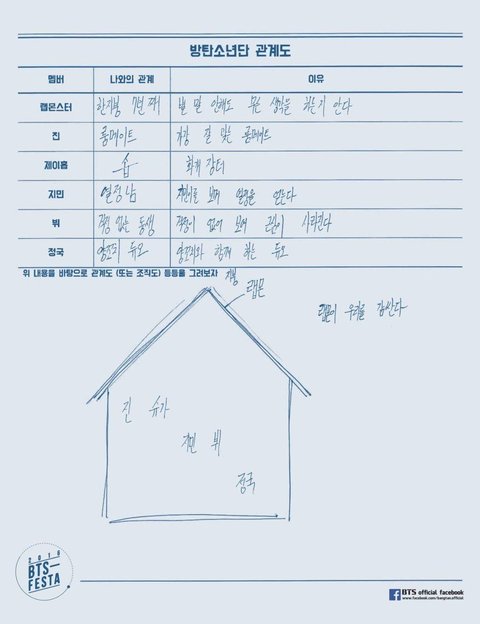 방탄소년단 관계도
멤버 나와의 관계 이유
랩몬스터 한지붕 7년 째 별 말 안해도 무슨 생각을 하는지 안다
진 룸메이트 가장 잘 맞는 룸메이트
제이홉 숍 화개 장터
지민 열정남 지민이를 보며 열정을 얻는다
뷔 걱정 없는 동생 걱정이 없어 보여 근심이 사라진다
정국 영포티 듀오 와 함께 하는 듀오
위 내용을 바탕으로 관계도 (또는 조직도) 등등을 그려보자
지붕
랩몬
랩몬이 우리를 감싼다
진 슈가
지민 뷔
정국
2016
BTS
FESTA
BTS official facebook
www.facebook.com/bangtan.official